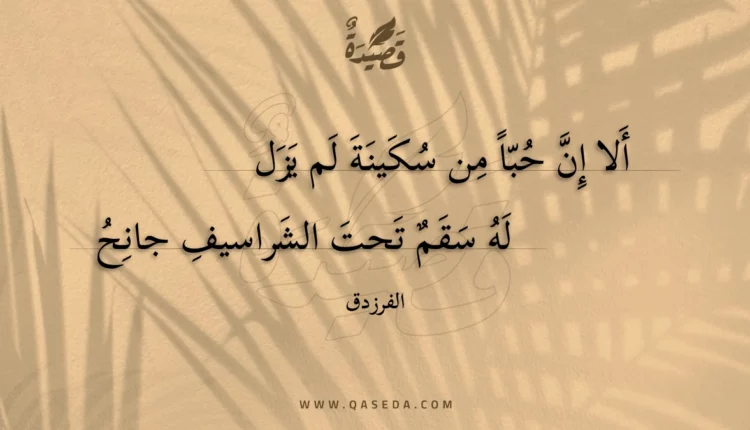 قَصِيدَةٌ
أَلا إِنَّ حُبّاً مِن سُكَينَةَ لَم يَزَل
لَهُ سَقَمٌ تَحتَ الشَراسيفِ جانِحُ
الفرزدق
WWW.QASEDA.COM